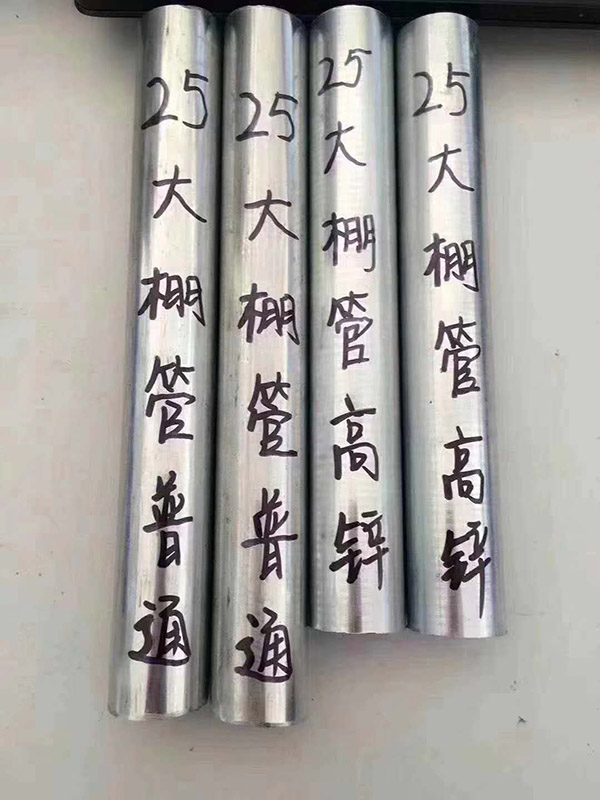 25大棚管普通
25大棚管普通
25大棚管高锌
25大棚管高锌